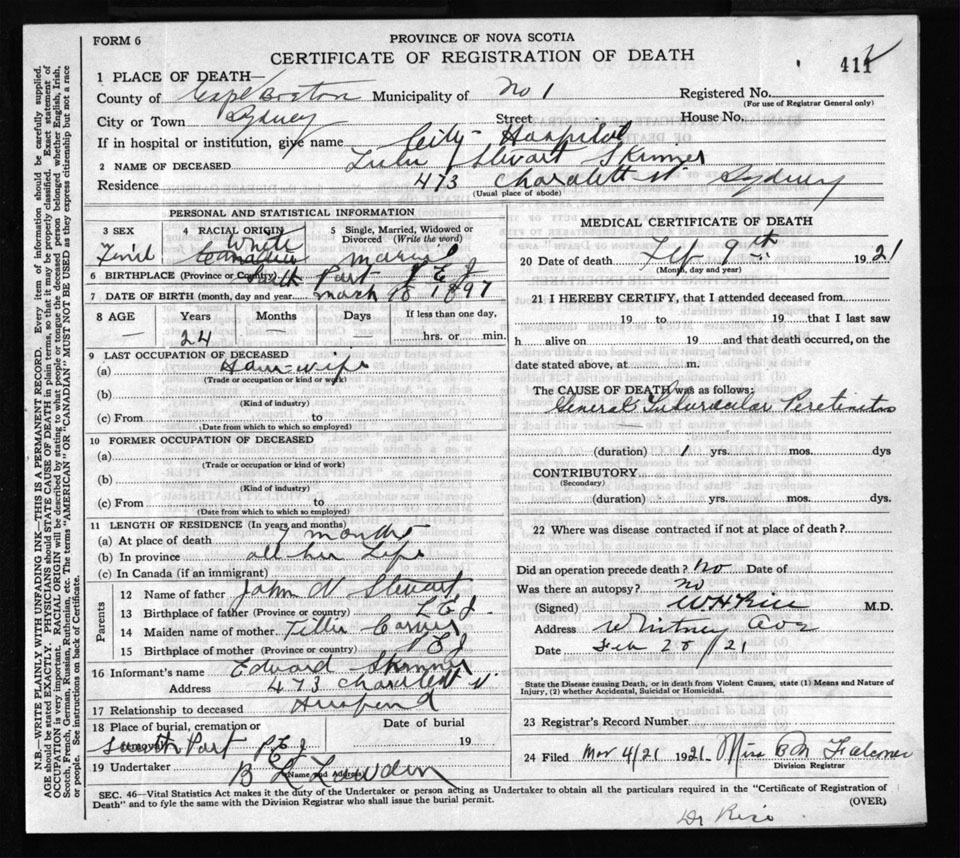 FORM 6
PROVINCE OF NOVA SCOTIA
CERTIFICATE OF REGISTRATION OF DEATH
1 PLACE OF DEATH—
County of Cape Breton Municipality of No 1 Registered No.
(For use of Registrar General only)
City or Town Sydney Street House No.
If in hospital or institution, give name City Hospital
2 NAME OF DECEASED Lulu Stewart Skinner
Residence 473 Charlotte St. Sydney
(Usual place of abode)
PERSONAL AND STATISTICAL INFORMATION
3 SEX
4 RACIAL ORIGIN White Canadian
5 Single, Married, Widowed or Divorced (Write the word)
6 BIRTHPLACE (Province or Country) Port P E I
7 DATE OF BIRTH (month, day and year) 18 1897
8 AGE Years Months Days If less than one day,
— 24 — hrs. or min.
9 LAST OCCUPATION OF DECEASED
(a) House-wife
(Trade or occupation or kind or work)
(b)
(Kind of industry)
(c) From to
(Date from which to which so employed)
10 FORMER OCCUPATION OF DECEASED
(a)
(Trade or occupation or kind of work)
(b)
(Kind of industry)
(c) From to
(Date from which to which so employed)
11 LENGTH OF RESIDENCE (In years and months)
(a) At place of death 7 months
(b) In province all her Life
(c) In Canada (if an immigrant)
Parents
12 Name of father John N Stewart
13 Birthplace of father (Province or country) P E I
14 Maiden name of mother Tillie
15 Birthplace of mother (Province or country) P E I
16 Informant's name Edward Skinner
Address 473 Charlotte St.
17 Relationship to deceased Husband
18 Place of burial, cremation or removal Port P E I
Date of burial 19
19 Undertaker B L
(Name and Address)
MEDICAL CERTIFICATE OF DEATH
20 Date of death Feb 9th 1921
(Month, day and year)
21 I HEREBY CERTIFY, that I attended deceased from
19 to 19 that I last saw
h alive on 19 and that death occurred, on the
date stated above, at m.
The CAUSE OF DEATH was as follows:
General Tubercular Peritonitis
(duration) 1 yrs. mos. dys
CONTRIBUTORY
(Secondary)
(duration) yrs. mos. dys.
22 Where was disease contracted if not at place of death?
Did an operation precede death? No Date of
Was there an autopsy? No
(Signed) W H Rice M.D.
Address Whitney Ave
Date Feb 28/21
State the Disease causing Death, or in death from Violent Causes, state (1) Means and Nature of
Injury, (2) whether Accidental, Suicidal or Homicidal.
23 Registrar's Record Number
24 Filed Mar 4/21 1921 Miss B M Falconer
Division Registrar
SEC. 46—Vital Statistics Act makes it the duty of the Undertaker or person acting as Undertaker to obtain all the particulars required in the "Certificate of Registration of
Death" and to fyle the same with the Division Registrar who shall issue the burial permit. (OVER)
Dr Rice
N.B.—WRITE PLAINLY WITH UNFADING INK—THIS IS A PERMANENT RECORD. Every item of information should be carefully supplied.
AGE should be stated EXACTLY. PHYSICIANS should STATE CAUSE OF DEATH in plain terms, so that it may be properly classified. Exact statement of
OCCUPATION is very important. RACIAL ORIGIN will be described by stating to what people or tongue the deceased person belonged, whether English, Irish,
Scotch, French, German, Russian, Ruthenian, etc. The terms "AMERICAN" OR "CANADIAN" MUST NOT BE USED as they express citizenship but not a race
or people. See instructions on back of Certificate.